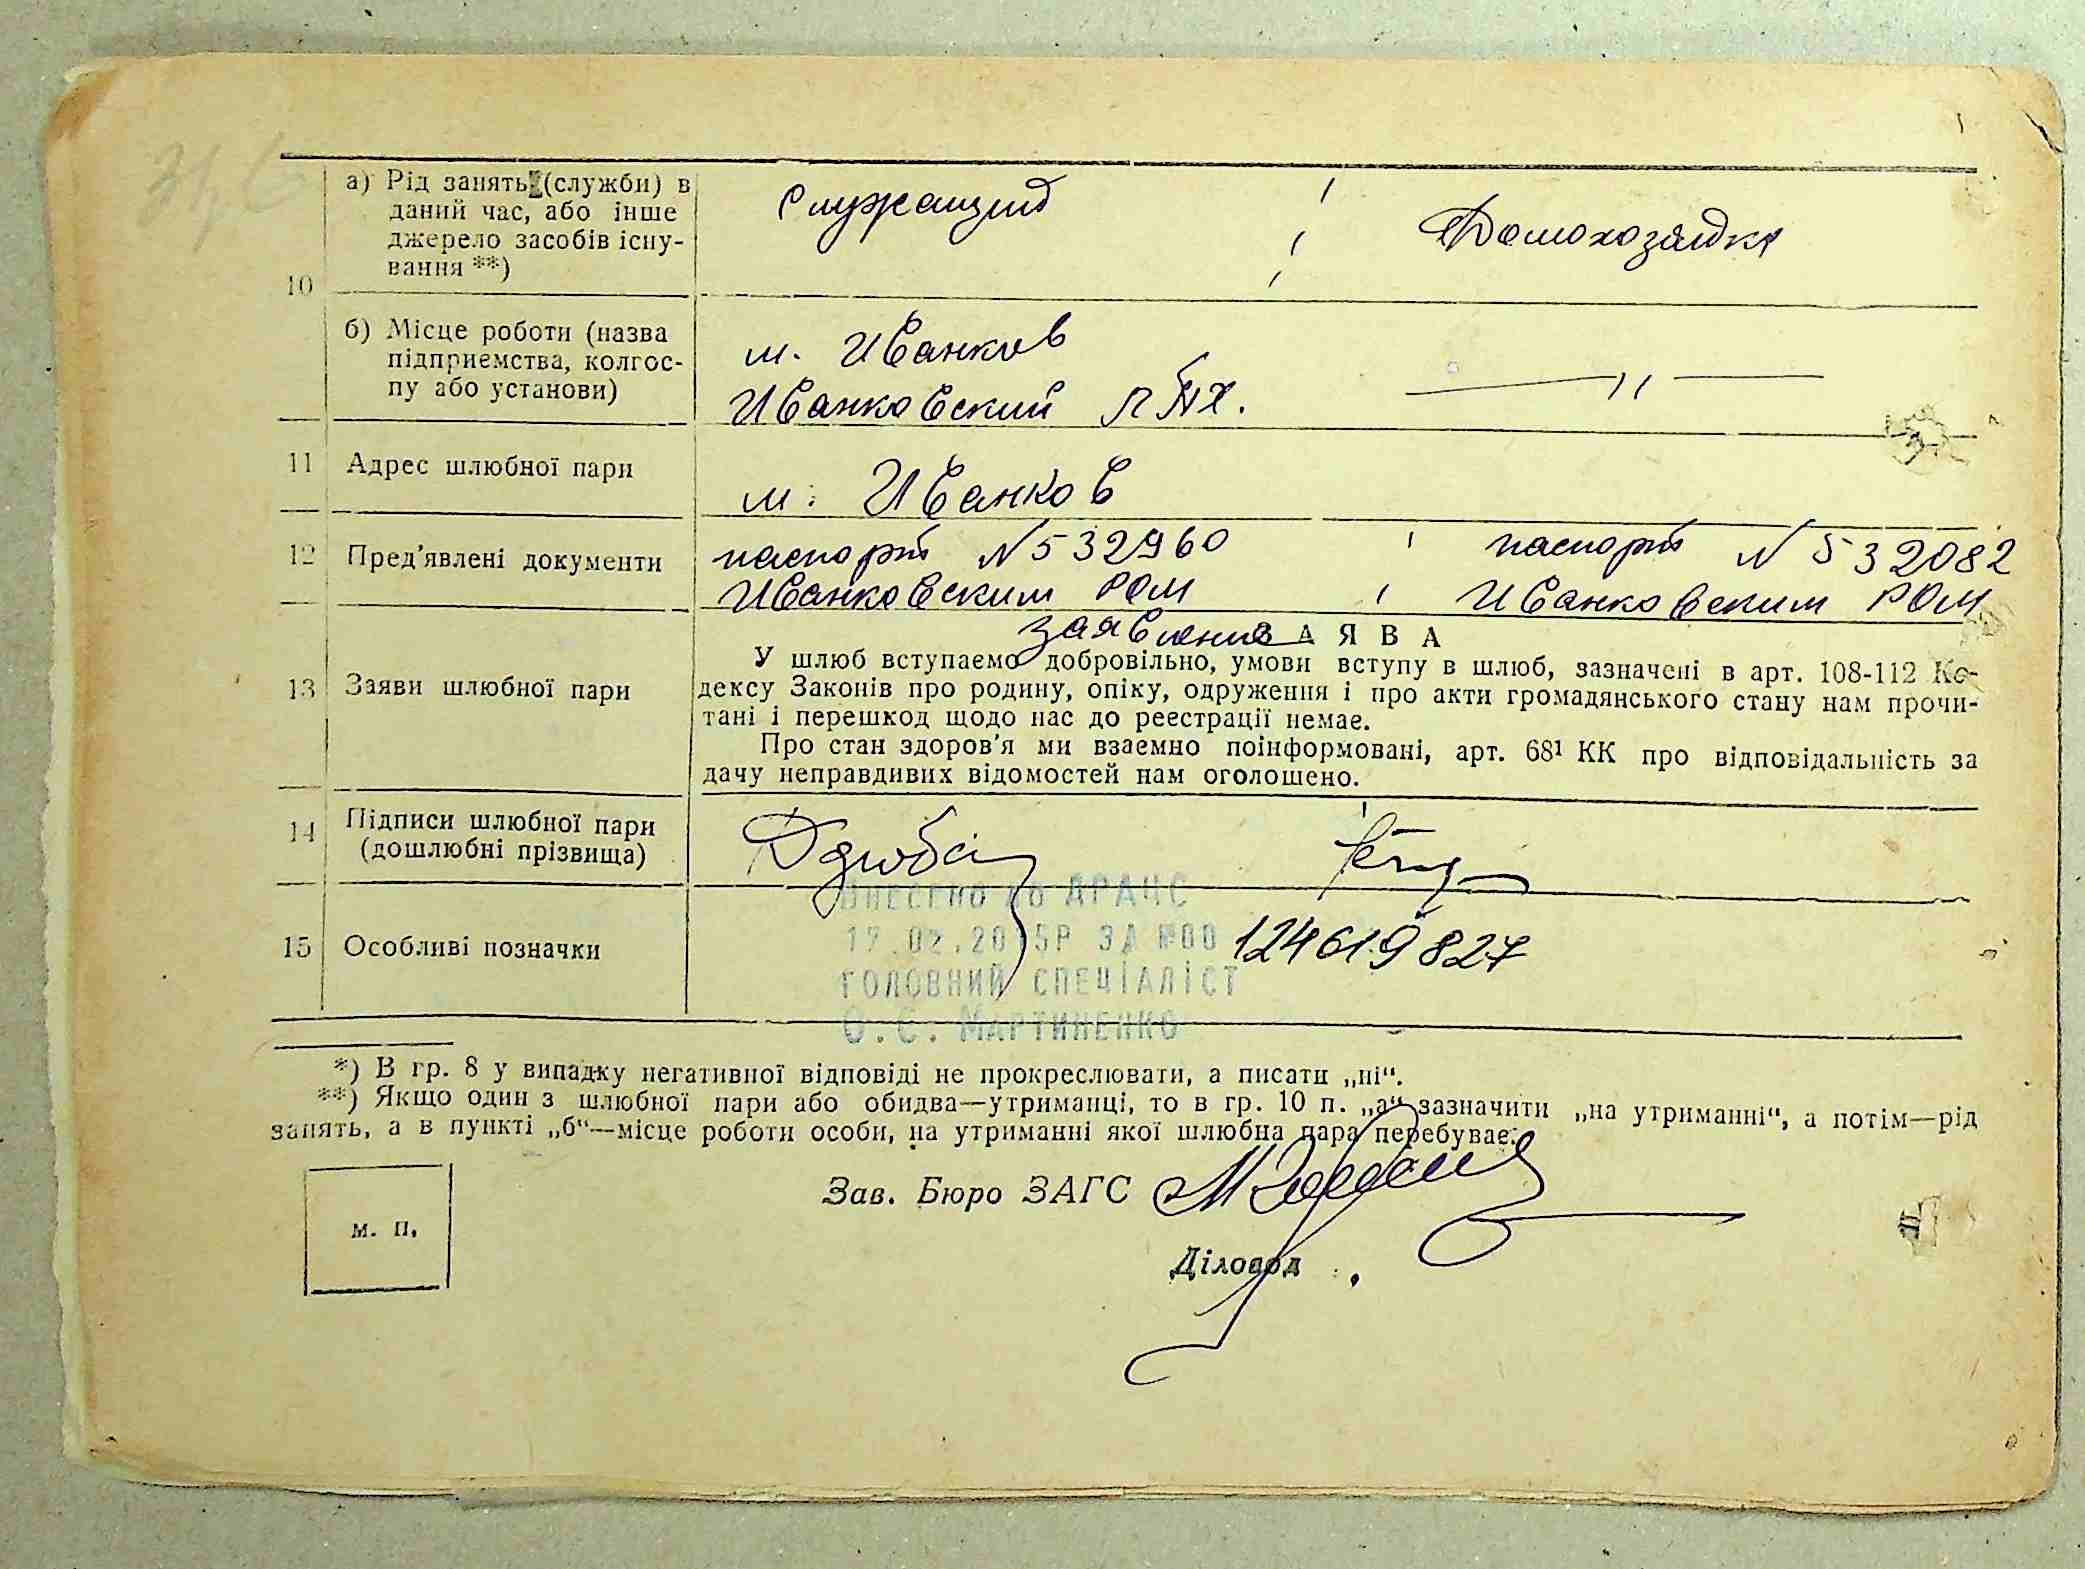 а) Рід занять (служби) в
даний час, або інше
джерело засобів існу-
вання **)
Служащий
Домохозяйка
10
б) Місце роботи (назва
підприємства, колгос-
пу або установи)
м. Иванков
Иванковский
11 Адрес шлюбної пари
м. Иванков
12 Пред'явлені документи
паспорт N 532960
паспорт N 532082
Иванковским РОМ
Иванковским РОМ
заявление ЗАЯВА
13 Заяви шлюбної пари
У шлюб вступаємо добровільно, умови вступу в шлюб, зазначені в арт. 108-112 Ко-
дексу Законів про родину, опіку, одруження і про акти громадянського стану нам прочи-
тані і перешкод щодо нас до реєстрації немає.
Про стан здоров'я ми взаємно поінформовані, арт. 68¹ КК про відповідальність за
дачу неправдивих відомостей нам оголошено.
14 Підписи шлюбної пари
(дошлюбні прізвища)
15 Особливі позначки
ВНЕСЕНО ДО ДРАЧС
17.02.2015Р ЗА №00 124619827
ГОЛОВНИЙ СПЕЦІАЛІСТ
О.С. МАРТИНЕНКО
*) В гр. 8 у випадку негативної відповіді не прокреслювати, а писати „ні“.
**) Якщо один з шлюбної пари або обидва—утриманці, то в гр. 10 п. „а“ зазначити „на утриманні“, а потім—рід
занять, а в пункті „б“—місце роботи особи, на утриманні якої шлюбна пара перебуває.
Зав. Бюро ЗАГС
м. п.
Діловод